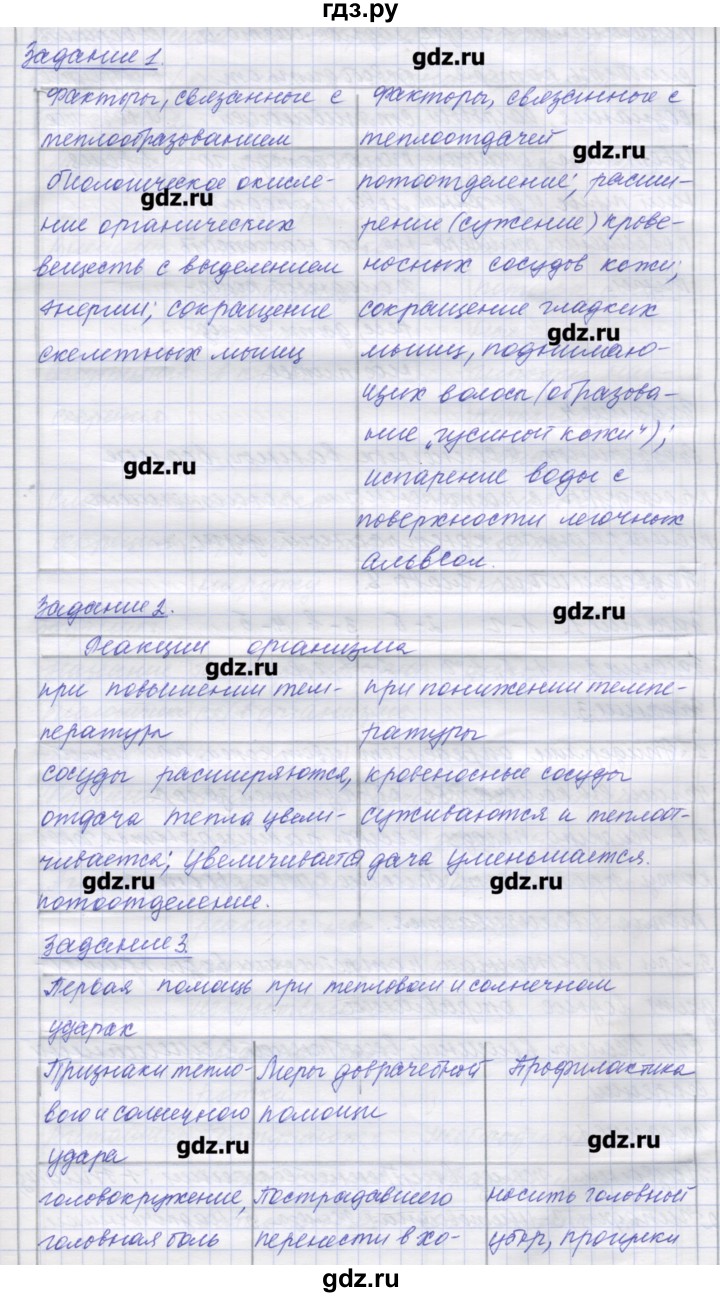 гдз.ру
Задание 1.
gdz.ru
Факторы, связанные с
теплообразованием
Факторы, связанные с
теплоотдачей
gdz.ru
биологическое окисле-
ние органических
веществ с выделением
энергии; сокращение
скелетных мышц
gdz.ru
потоотделение; расши-
рение (сужение) крове-
носных сосудов кожи;
сокращение гладких
мышц, поднимаю-
щих волосы (образова-
ние „гусиной кожи");
испарение воды с
поверхности легочных
альвеол.
gdz.ru
gdz.ru
Задание 2.
gdz.ru
Реакции организма
gdz.ru
при повышении тем-
пературы
при понижении темпе-
ратуры
сосуды расширяются,
отдача тепла увели-
чивается; увеличивается
потоотделение.
gdz.ru
кровеносные сосуды
суживаются и теплоот-
дача уменьшается.
gdz.ru
Задание 3.
Первая помощь при тепловом и солнечном
ударах
Признаки тепло-
вого и солнечного
удара
gdz.ru
Меры доврачебной
помощи
Профилактика
gdz.ru
головокружение,
головная боль
Пострадавшего
перенести в хо-
носить головной
убор, прогулки
gdz.ru